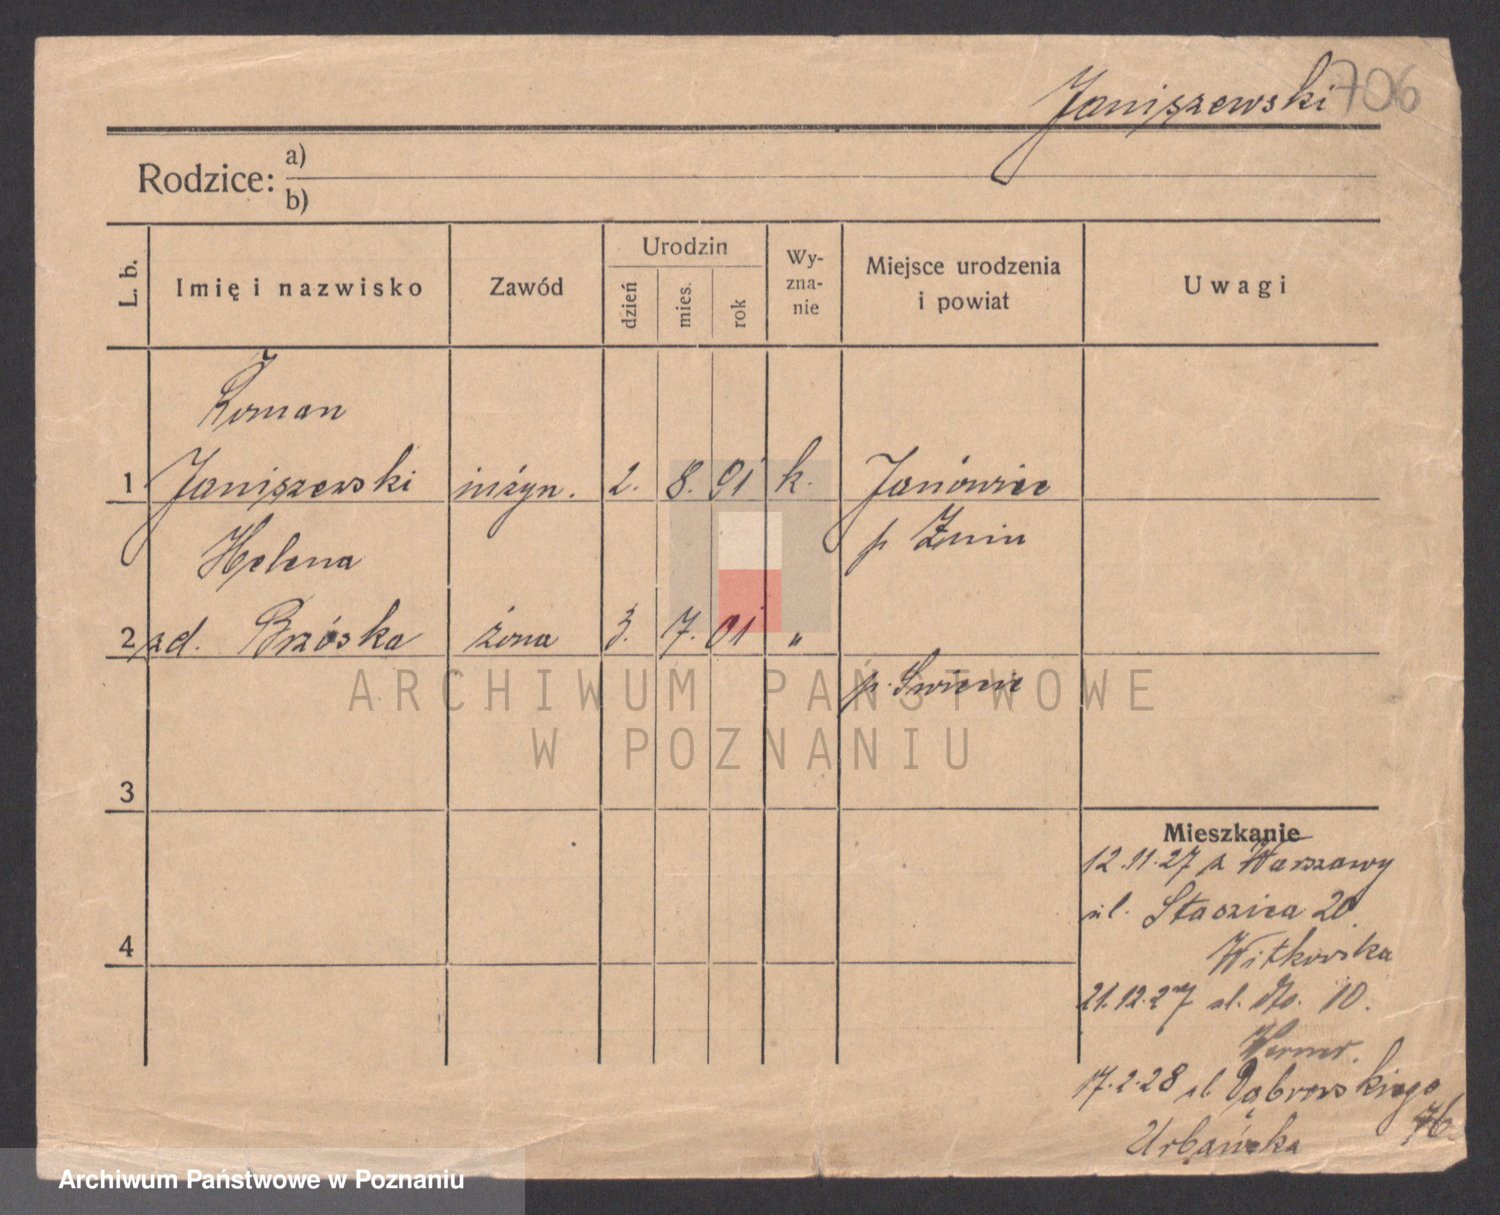 Janiszewski 706
Rodzice: a)
b)
L. b.
Imię i nazwisko
Zawód
Urodzin
dzień
mies.
rok
Wy-
zna-
nie
Miejsce urodzenia
i powiat
Uwagi
Roman
1 Janiszewski inżyn. 2. 8. 01 k. Janówiec
p Żnin
Helena
2 zd. Brzóska żona 3. 7. 01 "
p. Świecie
3
4
Mieszkanie
12.11.27 z Warszawy
ul. Staszica 20
Witkowska
21.12.27 ul. 10.
Werner.
17.2.28 ul Dąbrowskiego
76.
Urbańska
ARCHIWUM PAŃSTWOWE
W POZNANIU
Archiwum Państwowe w Poznaniu